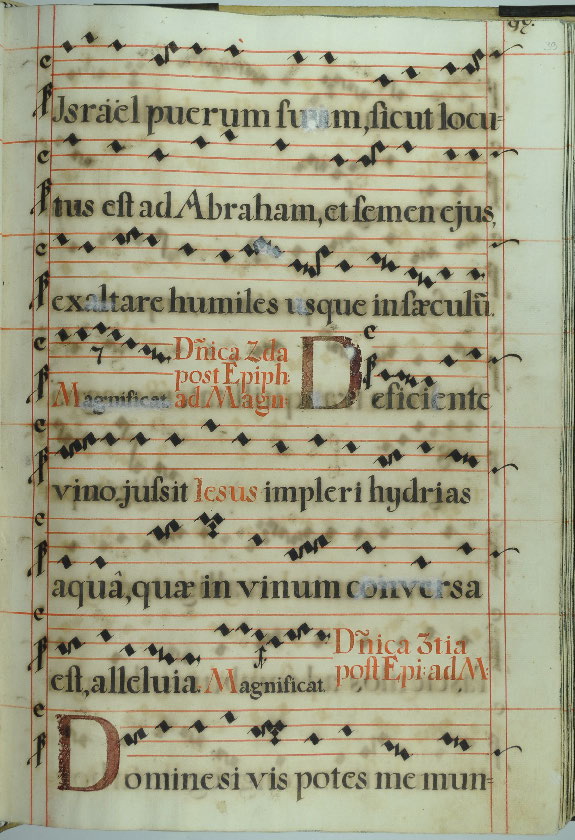 Jsräel puerum suum, sicut locu=
tus est ad Abraham, et semen ejus,
exaltare humiles usque in sæculũ.
Magnificat. Dñica 2da
post Epiph:
ad Magn: Deficiente
vino jussit Iesus impleri hydrias
aquâ, quæ in vinum conversa
est, alleluia. Magnificat. Dñica 3tia
post Epi: ad M:
Domine si vis potes me mun=